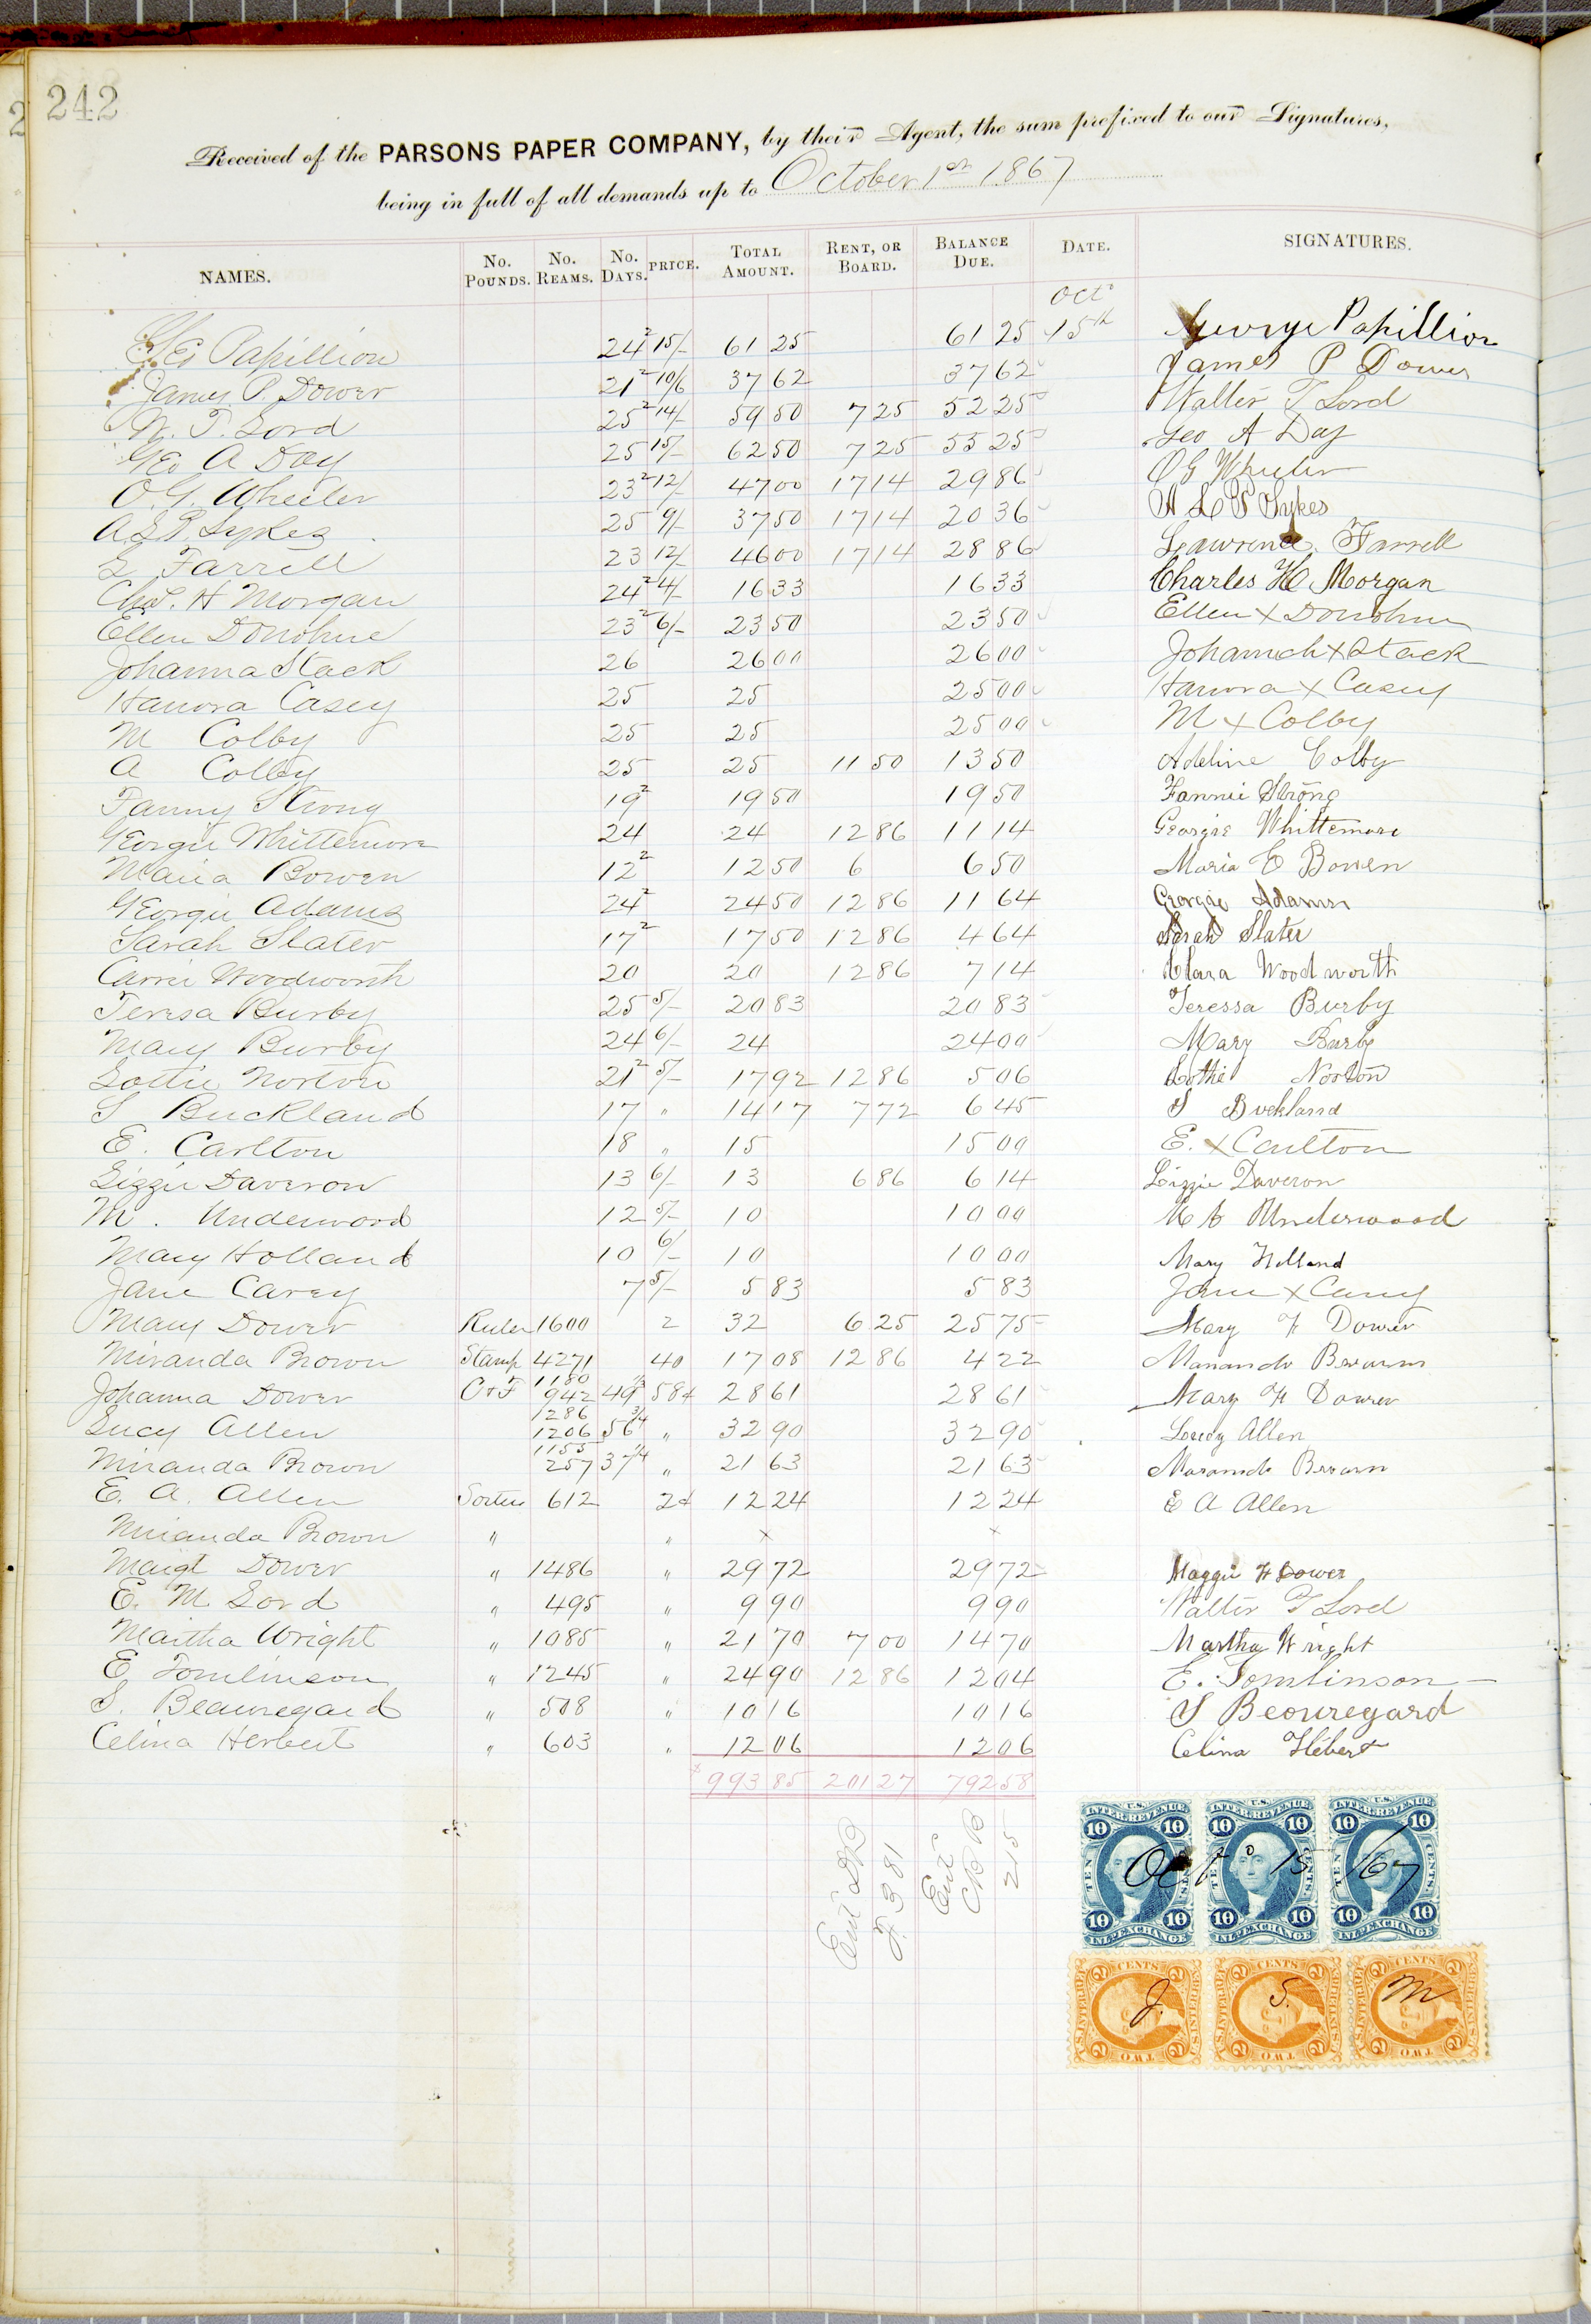 242
Received of the PARSONS PAPER COMPANY, by their Agent, the sum prefixed to our Signatures,
being in full of all demands up to October 1st 1867
NAMES. No. POUNDS. No. REAMS. No. DAYS. PRICE. TOTAL AMOUNT. RENT, OR BOARD. BALANCE DUE. DATE. SIGNATURES.
Oct
Geo Papillion 24 2 15/- 61 25 61 25 15th George Papillion
James P. Dower 21 2 10/6 37 62 37 62 James P Dower
W. T. Lord 25 2 14/- 59 50 7 25 52 25 Walter T Lord
Geo A Day 25 15/- 62 50 7 25 55 25 Geo A Day
O. G. Wheeler 23 2 12/- 47 00 17 14 29 86 O G Wheeler
A. L. P. Sykes 25 9/- 37 50 17 14 20 36 A L P Sykes
L Farrell 23 12/- 46 00 17 14 28 86 Lawrence Farrell
Chas. H Morgan 24 2 4/- 16 33 16 33 Charles H Morgan
Ellen Donohue 23 2 6/- 23 50 23 50 Ellen X Donohue
Johanna Stack 26 26 00 26 00 Johannah X Stack
Hanora Casey 25 25 25 00 Hanora X Casey
M Colby 25 25 25 00 M X Colby
A Colby 25 25 11 50 13 50 Adeline Colby
Fanny Strong 19 2 19 50 19 50 Fannie Strong
Georgie Whittemore 24 24 12 86 11 14 Georgie Whittemore
Maria Bowen 12 2 12 50 6 6 50 Maria E Bowen
Georgie Adams 24 2 24 50 12 86 11 64 Georgie Adams
Sarah Slater 17 2 17 50 12 86 4 64 Sarah Slater
Carrie Woodworth 20 20 12 86 7 14 Clara Woodworth
Teresa Burby 25 5/- 20 83 20 83 Teressa Burby
Mary Burby 24 6/- 24 24 00 Mary Burby
Lottie Norton 21 2 5/- 17 92 12 86 5 06 Lottie Norton
S Buckland 17 " 14 17 7 72 6 45 S Buckland
E. Carlton 18 " 15 15 00 E. X Carlton
Lizzie Daveron 13 6/- 13 6 86 6 14 Lizzie Daveron
M. Underwood 12 5/- 10 10 00 M A Underwood
Mary Holland 10 6/- 10 10 00 Mary Holland
Jane Carey 7 5/- 5 83 5 83 Jane X Carey
Mary Dower Ruler 1600 2 32 6 25 25 75 Mary F Dower
Miranda Brown Stamp 4271 40 17 08 12 86 4 22 Maranda Brown
Johanna Dower C & F 1180 942 49 58¢ 28 61 28 61 Mary F Dower
Lucy Allen 1286 1206 56 3/4 " 32 90 32 90 Loucy Allen
Miranda Brown 1155 257 37 1/4 " 21 63 21 63 Maranda Brown
E. A. Allen Sorter 612 2¢ 12 24 12 24 E A Allen
Miranda Brown " " x x
Margt Dower " 1486 " 29 72 29 72 Maggie F Dower
E. M Lord " 495 " 9 90 9 90 Walter T Lord
Martha Wright " 1085 " 21 70 7 00 14 70 Martha Wright
E Tomlinson " 1245 " 24 90 12 86 12 04 E. Tomlinson
S. Beauregard " 508 " 10 16 10 16 S Beouregard
Celina Herbert " 603 " 12 06 12 06 Celina Hébert
$ 993 85 201 27 792 58
Ent DB
J. 381
Ent
CBB
215
U.S. INTER. REVENUE 10 10 TEN CENTS 10 10 INL. EXCHANGE
U.S. INTER. REVENUE 10 10 TEN CENTS 10 10 INL. EXCHANGE
U.S. INTER. REVENUE 10 10 TEN CENTS 10 10 INL. EXCHANGE
Oct 15 /67
U.S. INTER. REV. 2 CENTS 2 TWO
U.S. INTER. REV. 2 CENTS 2 TWO
U.S. INTER. REV. 2 CENTS 2 TWO
J. S. M